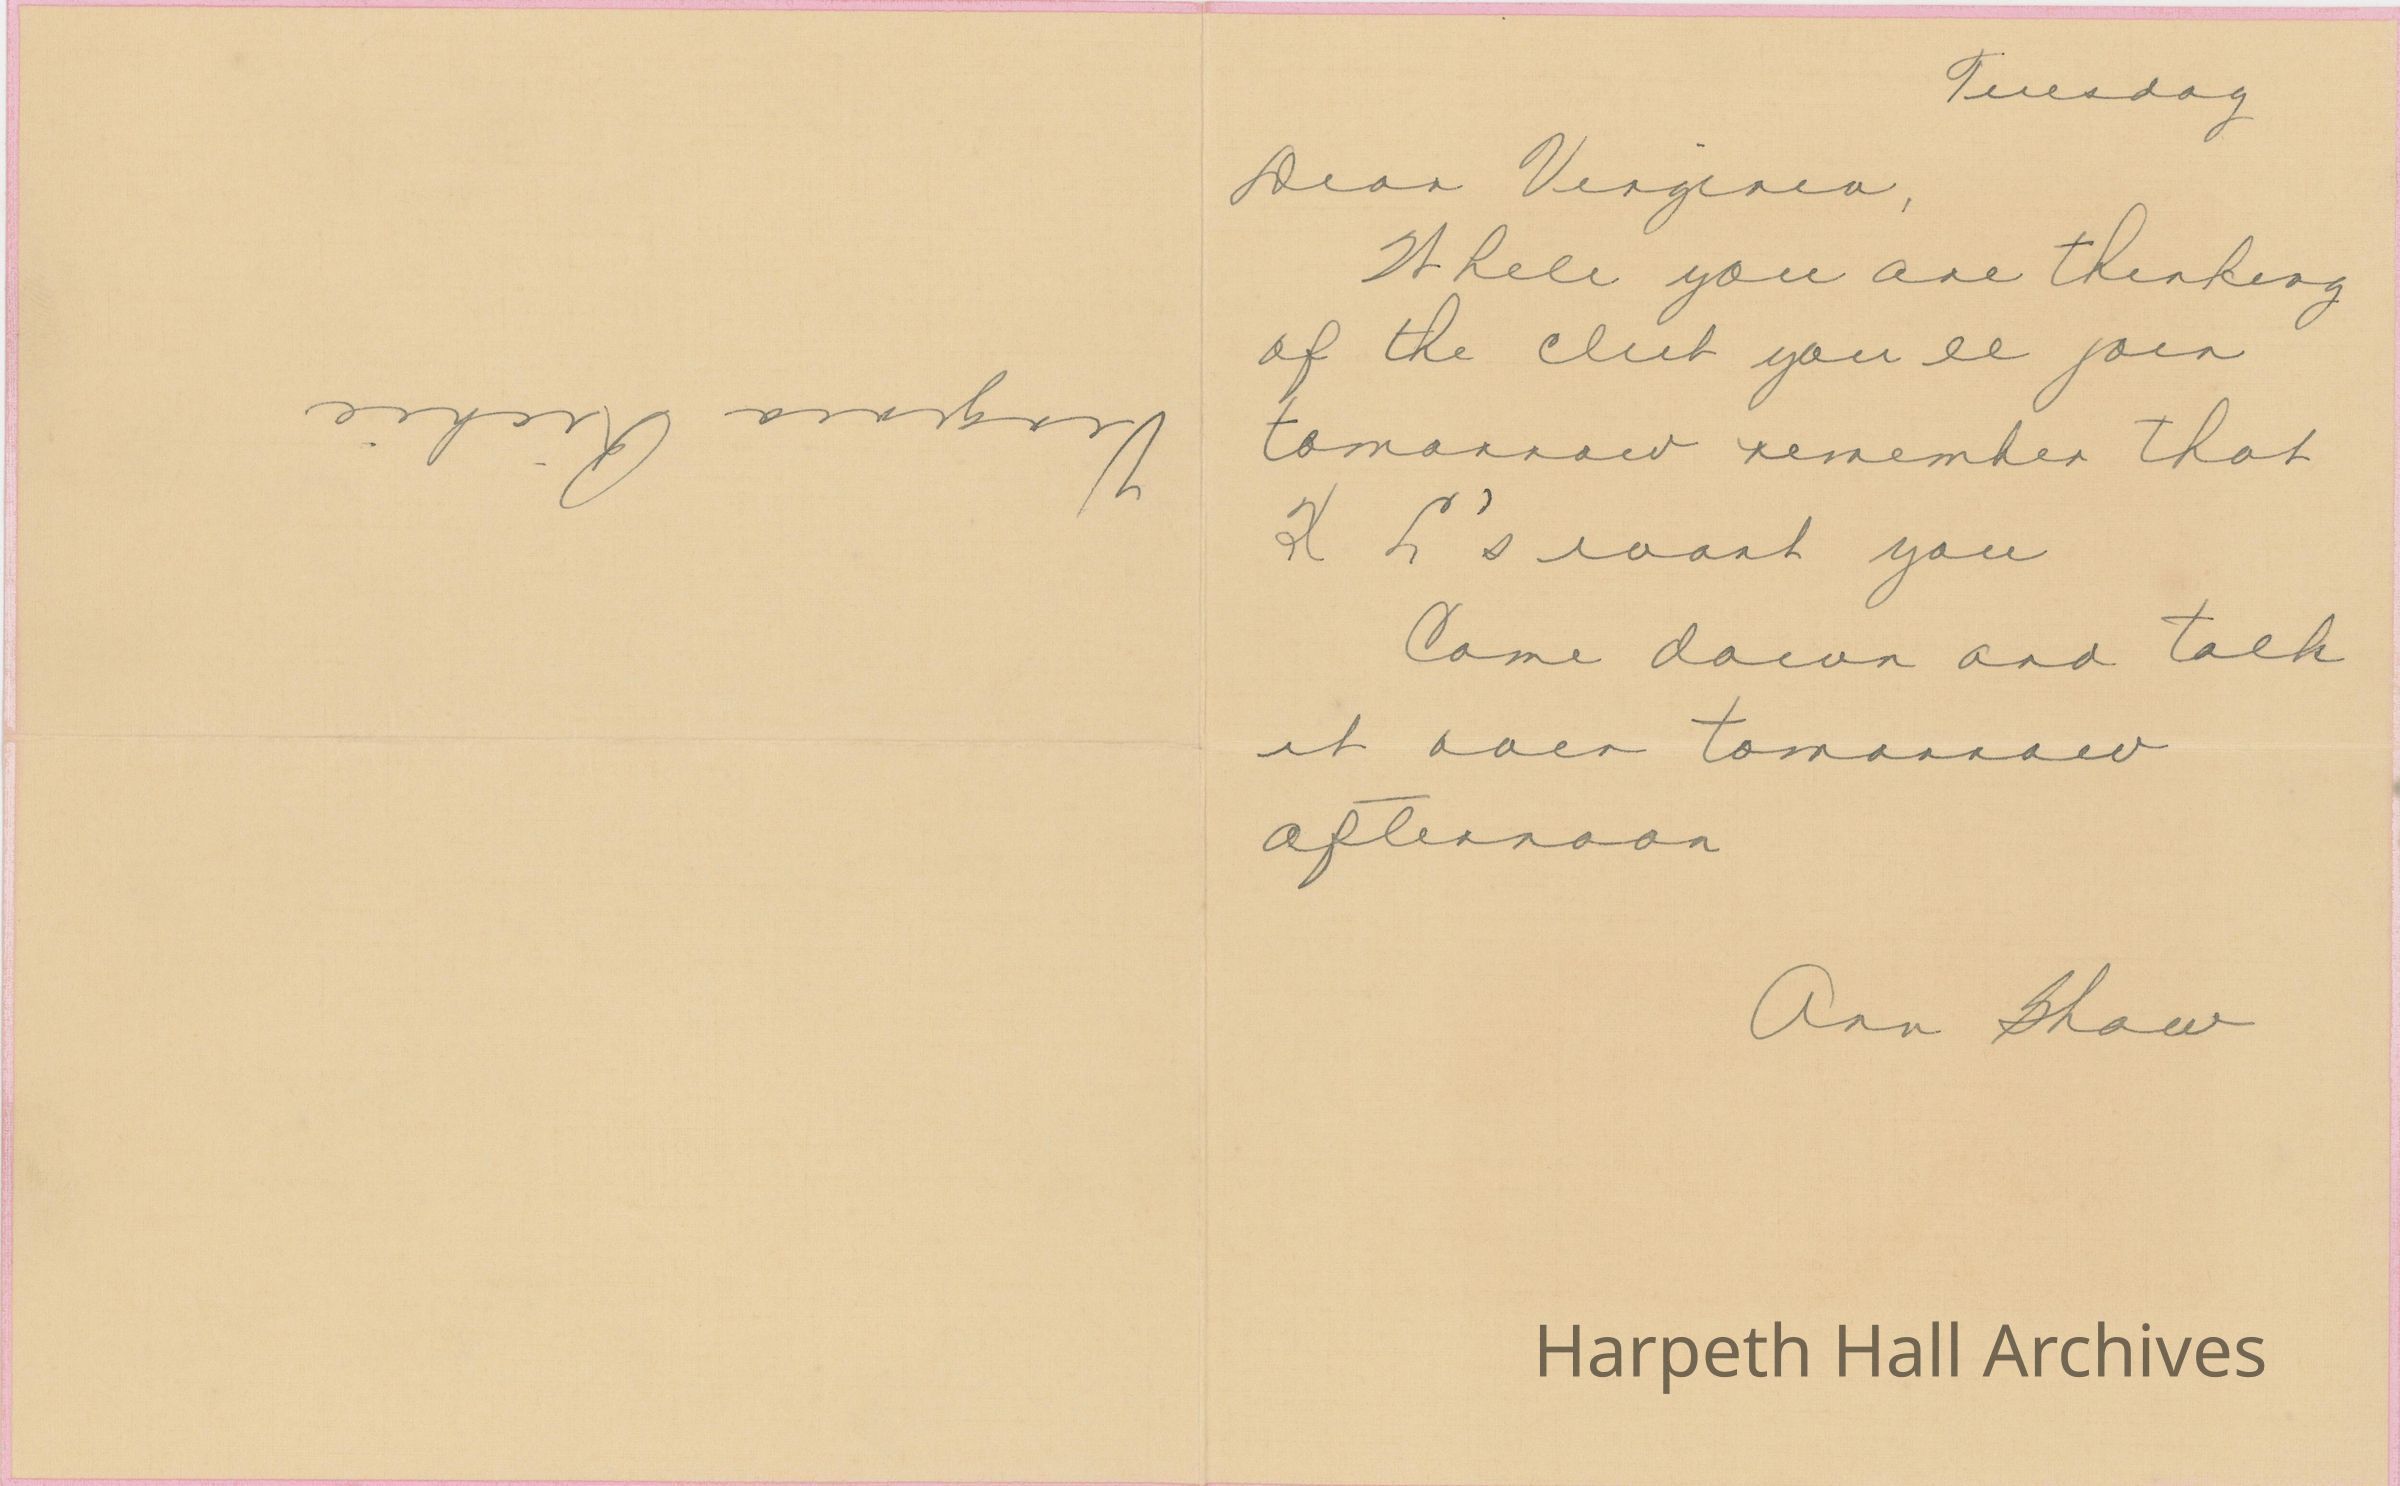 Virginia Richie
Tuesday
Dear Virginia,
While you are thinking
of the club you ll join
tomorrow remember that
X L's want you
Come down and talk
it over tomorrow
afternoon
Ann Shaw
Harpeth Hall Archives